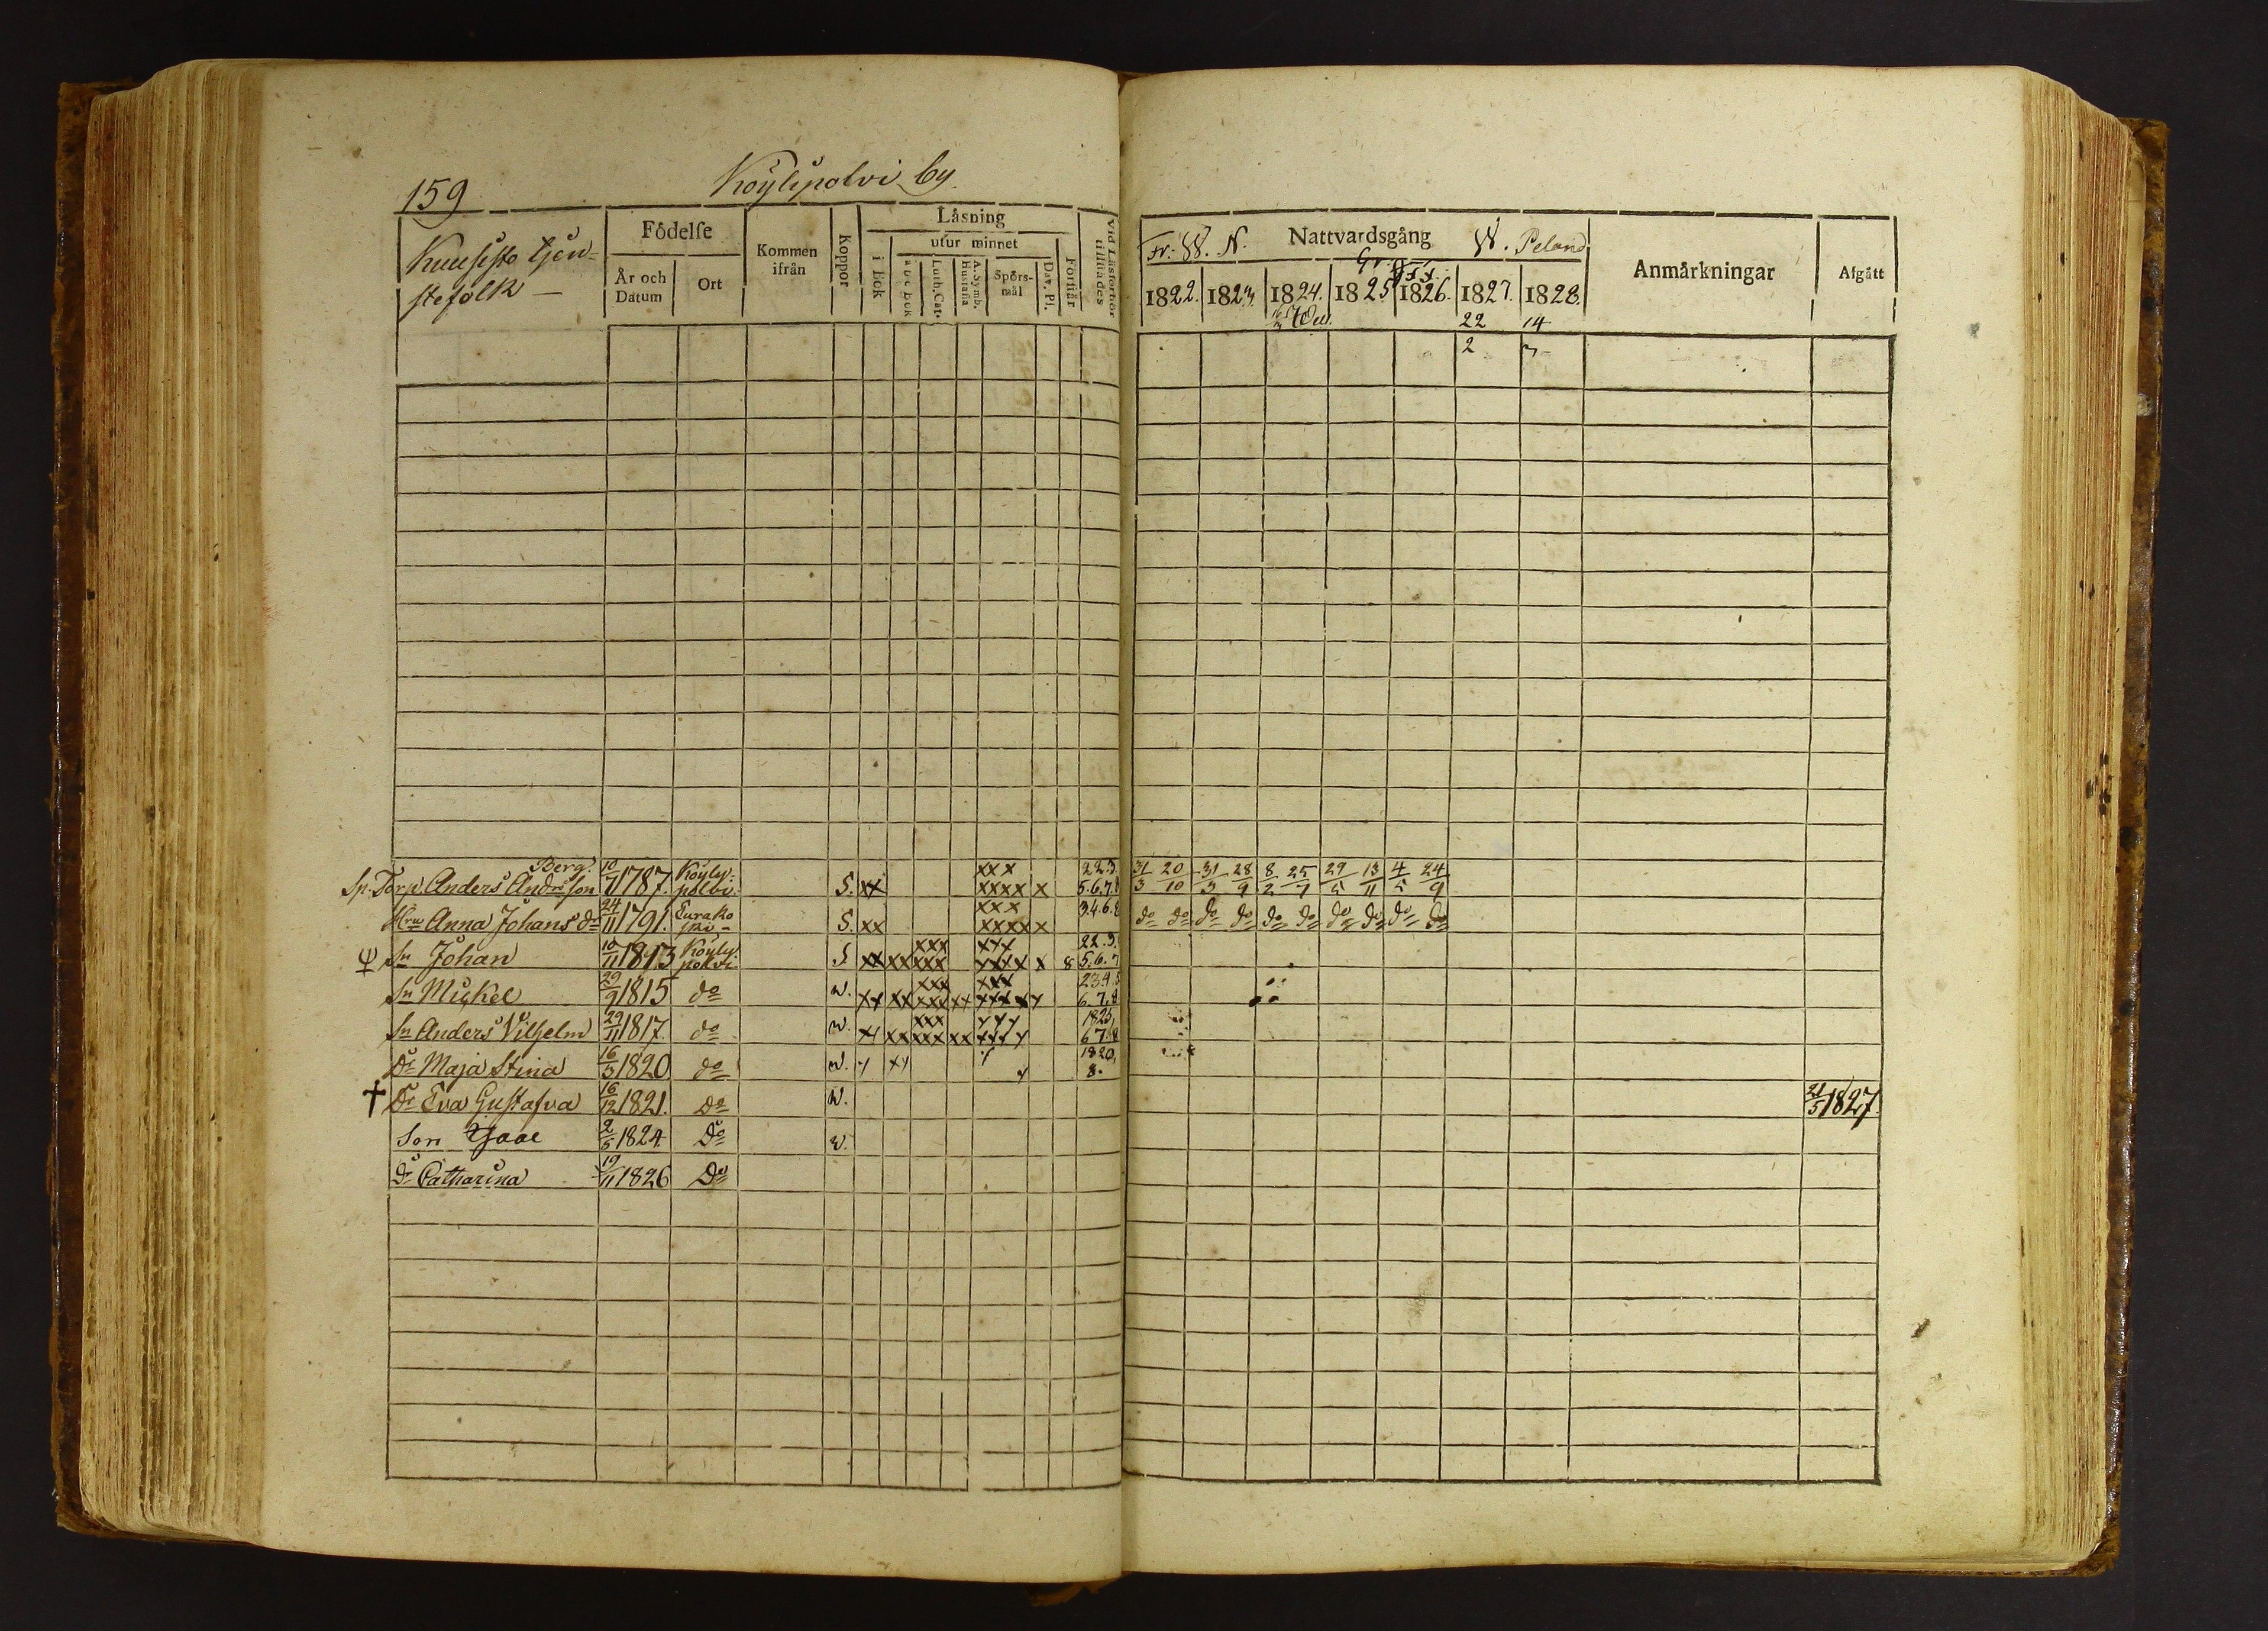 159
Köylypolvi by
Kuusisto tjen-
stefolk —
Födelse
År och Datum
Ort
Kommen ifrån
Koppor
Läsning
i Bok
utur minnet
a b c bok
Luth. Cat.
A. Symb. Hustafla
Spörs-mål
Dav. Ps.
Förstår
Vid Läsförhör tillstädes
Fr: W. N. Nattvardsgång W. Peland
1822. 1823. 1824. 1825 1826. 1827. 1828.
22 14
2 3
Anmärkningar
Afgått
Berg.
Sp. Torp. Anders Andersson 10/11 1787. Köyly-polvi. S. xx xxx xxxx x 22.3. 5.6.7.8 31/3 20/10 31/3 28/9 8/2 25/7 29/5 13/11 4/5 24/9
Hru Anna Johans dr 24/11 1791. Eurako S. xx xxx xxxxx 3.4.6.8 do do do do do do do do do do
Sn Johan 10/11 1813 Köyly-polvi S xx xx xxx xxx xxx xxxx x 8 22.3. 5.6.7
Sn Mickel 29/9 1815 do w. xx xx xxx xxx xx xxx xxxxx 23.4.5 6.7.8
Sn Anders Vilhelm 29/11 1817. do w. xx xx xxx xxx xx xxx xxx x 1825, 6 7.8
Dr Maja Stina 16/3 1820 do w. x xx x x 1820, 8.
† Dr Eva Gustafva 16/12 1821. Do w. 21/5 1827.
Son Isaac 2/5 1824. Do w.
Dr Catharina 19/11 1826 Do